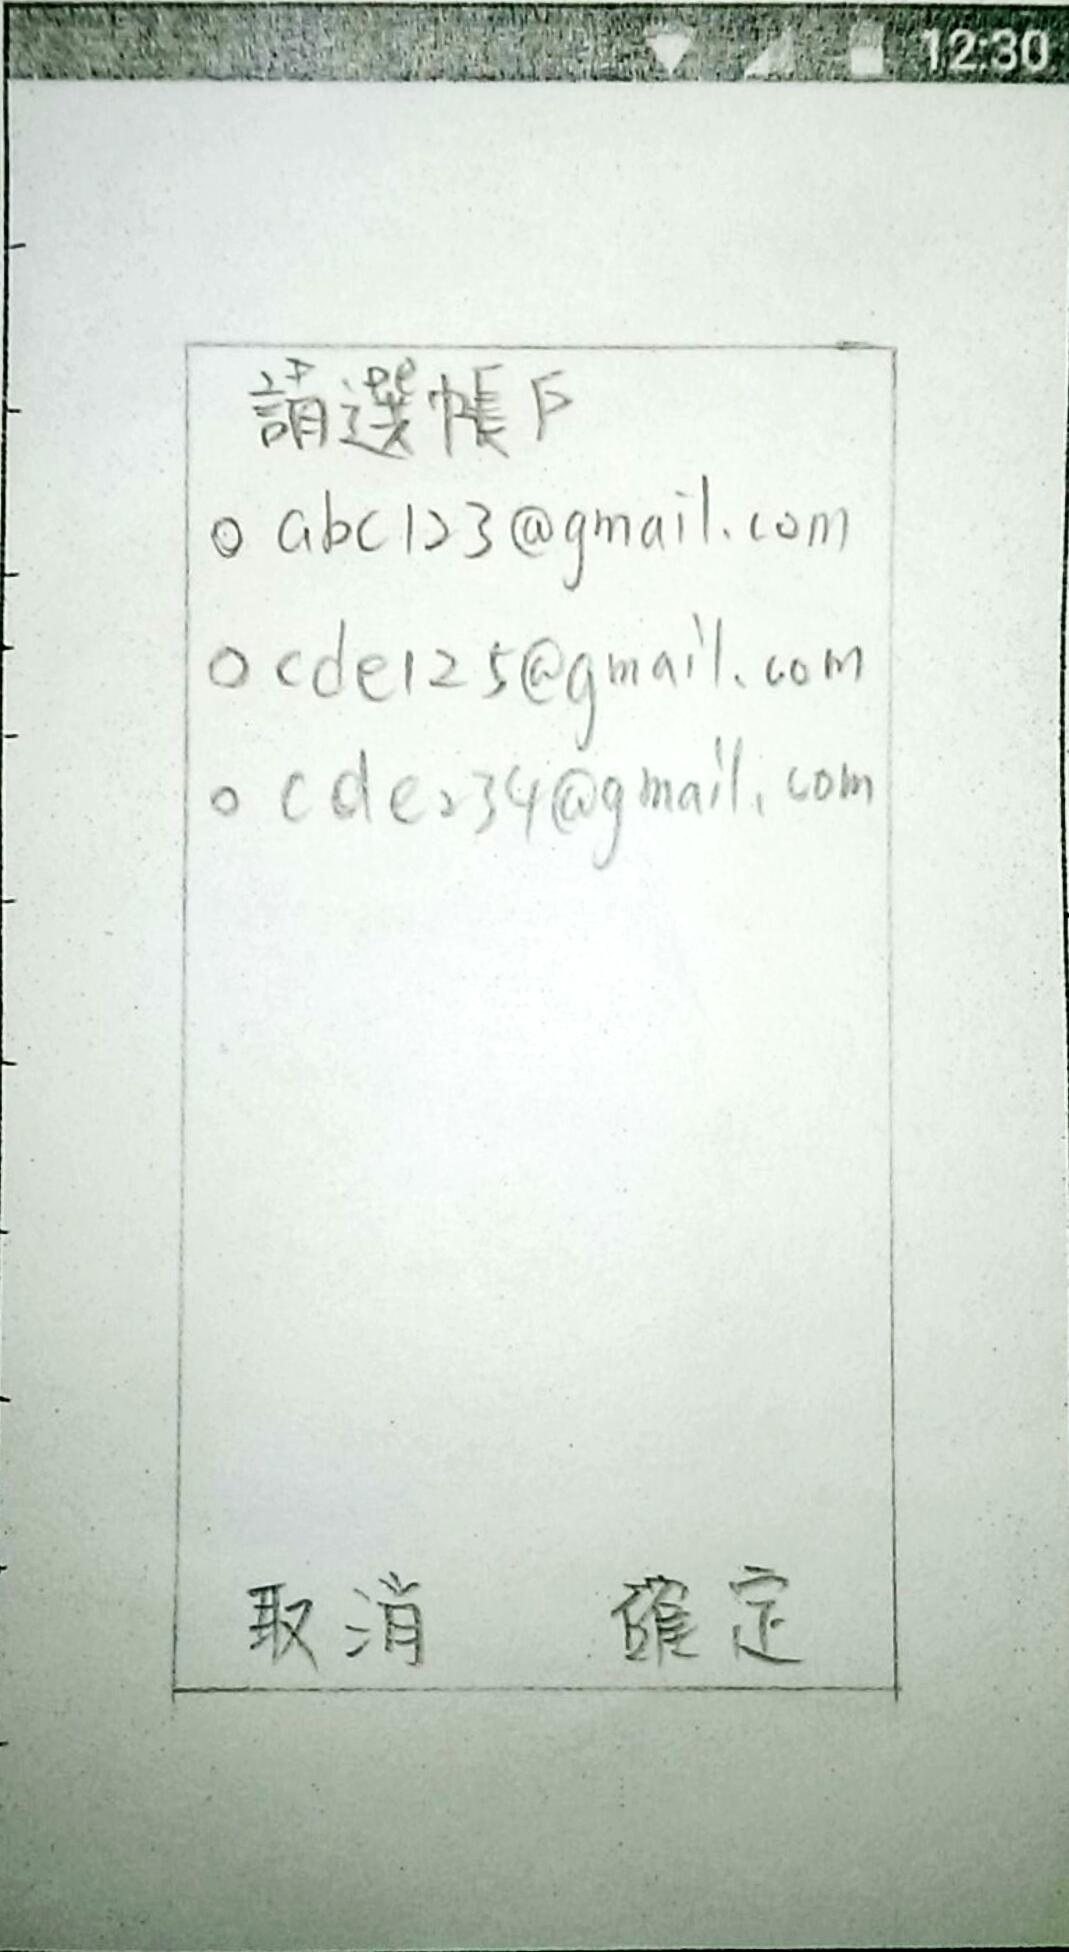 12:30
請選帳戶
abc123@gmail.com
cde125@gmail.com
cde234@gmail.com
取消 確定